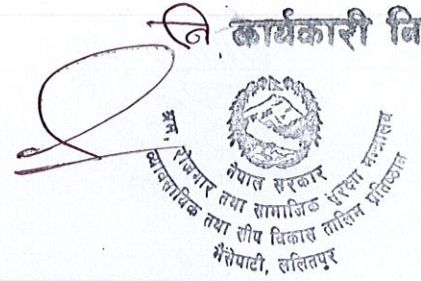 नि. कार्यकारी नि
नेपाल सरकार
श्रम, रोजगार तथा सामाजिक सुरक्षा मन्त्रालय
व्यावसायिक तथा सीप विकास तालिम प्रतिष्ठान
भैंसेपाटी, ललितपुर